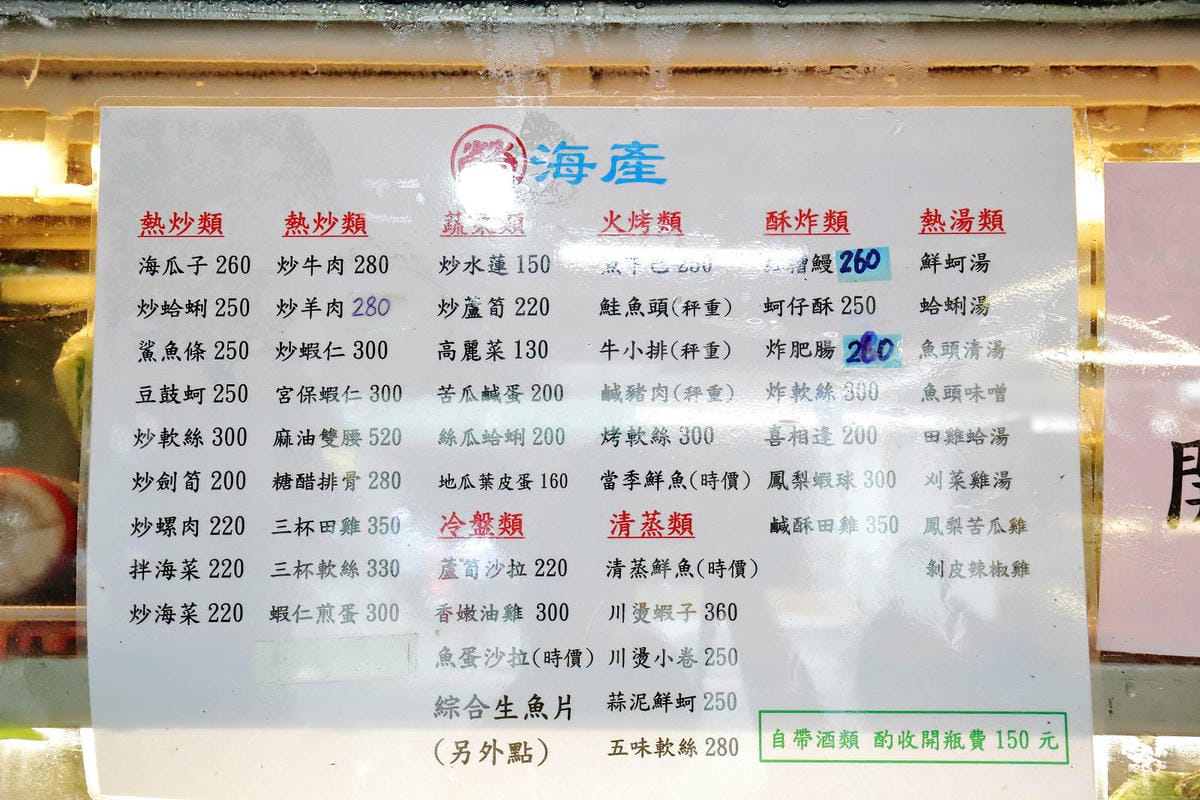 海產
熱炒類
海瓜子 260
炒蛤蜊 250
鯊魚條 250
豆鼓蚵 250
炒軟絲 300
炒劍筍 200
炒螺肉 220
拌海菜 220
炒海菜 220
熱炒類
炒牛肉 280
炒羊肉 280
炒蝦仁 300
宮保蝦仁 300
麻油雙腰 520
糖醋排骨 280
三杯田雞 350
三杯軟絲 330
蝦仁煎蛋 300
蔬菜類
炒水蓮 150
炒蘆筍 220
高麗菜 130
苦瓜鹹蛋 200
絲瓜蛤蜊 200
地瓜葉皮蛋 160
冷盤類
蘆筍沙拉 220
香嫩油雞 300
魚蛋沙拉(時價)
綜合生魚片
(另外點)
火烤類
魚下巴 250
鮭魚頭(秤重)
牛小排(秤重)
鹹豬肉(秤重)
烤軟絲 300
當季鮮魚(時價)
清蒸類
清蒸鮮魚(時價)
川燙蝦子 360
川燙小卷 250
蒜泥鮮蚵 250
五味軟絲 280
酥炸類
紅糟鰻 260
蚵仔酥 250
炸肥腸
炸軟絲 300
喜相逢 200
鳳梨蝦球 300
鹹酥田雞 350
熱湯類
鮮蚵湯
蛤蜊湯
魚頭清湯
魚頭味噌
田雞蛤湯
刈菜雞湯
鳳梨苦瓜雞
剝皮辣椒雞
自帶酒類 酌收開瓶費 150 元